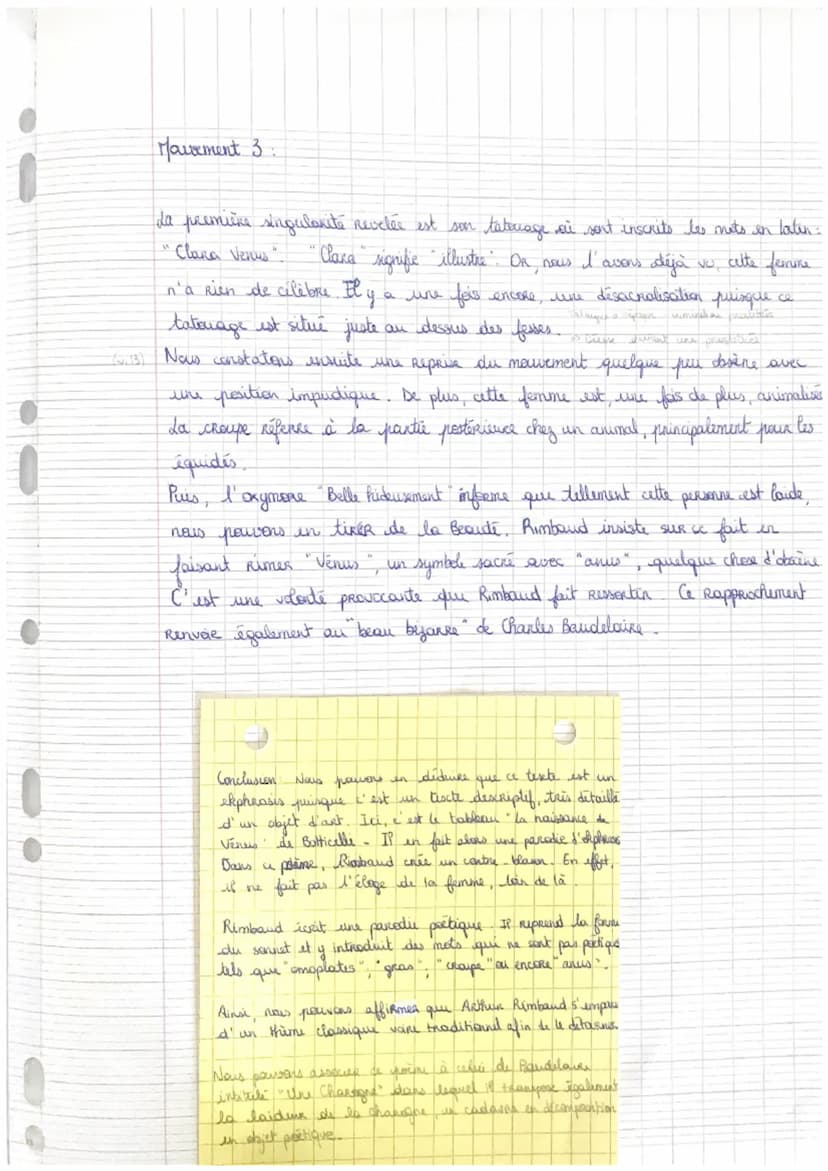 Mouvement 3 :
La première singularité revelée est son tatouage où sont inscrits les mots en latin :
"Clara Venus". "Clara" signifie "illustre". Or, nous l'avons déjà vu, cette femme
n'a rien de célèbre. Il y a une fois encore, une désacralisation puisque ce
tatouage est situé juste au dessus des fesses.
(v.13) Nous constatons ensuite une reprise du mouvement quelque peu obscène avec
une position impudique. De plus, cette femme est, une fois de plus, animalisée
La croupe réfère à la partie postérieure chez un animal, principalement pour les
équidés.
Puis, l'oxymore "Belle hideusement" informe que tellement cette personne est laide,
nous pouvons en tirer de la Beauté. Rimbaud insiste sur ce fait en
faisant rimer "Vénus", un symbole sacré avec "anus", quelque chose d'obscène
C'est une volonté provocante que Rimbaud fait ressortir. Ce rapprochement
renvoie également au "beau bizarre" de Charles Baudelaire.
Conclusion : Nous pouvons en déduire que ce texte est un
ekphrasis puisque c'est un texte descriptif, très détaillé
d'un objet d'art. Ici, c'est le tableau "La naissance de
Vénus" de Botticelli. Il en fait alors une parodie d'ekphrasis
Dans ce poème, Rimbaud crée un contre-blason. En effet,
il ne fait pas l'éloge de la femme, loin de là.
Rimbaud écrit une parodie poétique. Il reprend la forme
du sonnet et y introduit des mots qui ne sont pas poétique
tels que "omoplates", "gras", "croupe" ou encore "anus".
Ainsi, nous pouvons affirmer que Arthur Rimbaud s'empare
d'un thème classique voire traditionnel afin de le détourner.
Nous pouvons associer ce poème à celui de Baudelaire
intitulé "Une Charogne" dans lequel il transpose également
la laideur de la charogne, un cadavre en décomposition
en objet poétique.